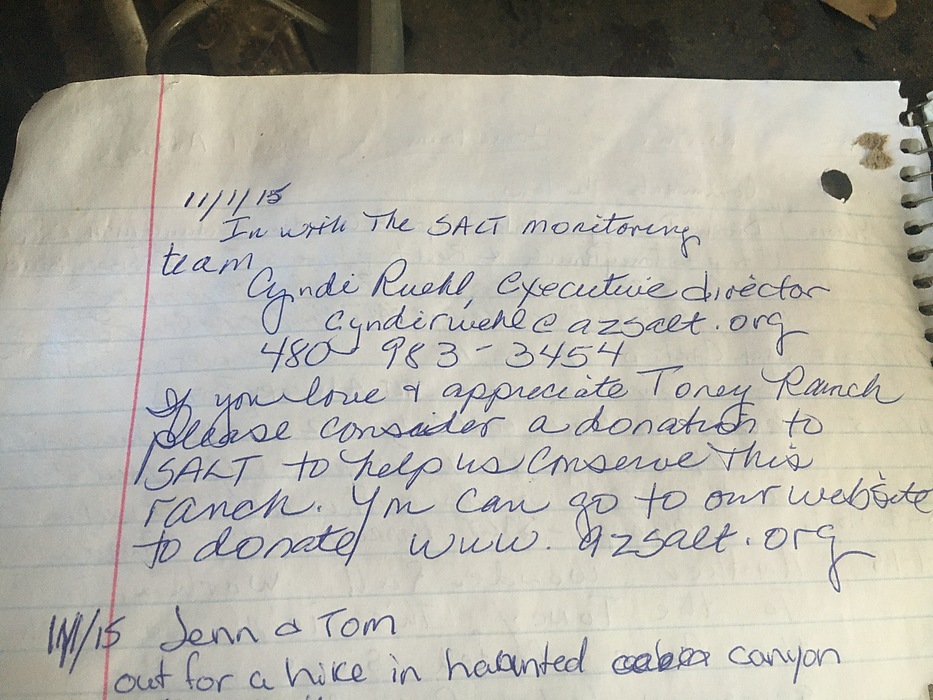 11/1/15
In with The SALT monitoring
team
Cyndi Ruehl, executive director
cyndiruehl@azsalt.org
480 983-3454
If you love & appreciate Toney Ranch
please consider a donation to
SALT to help us conserve this
ranch. You can go to our website
to donate www.azsalt.org
/15 Jenn & Tom
out for a hike in haunted canyon